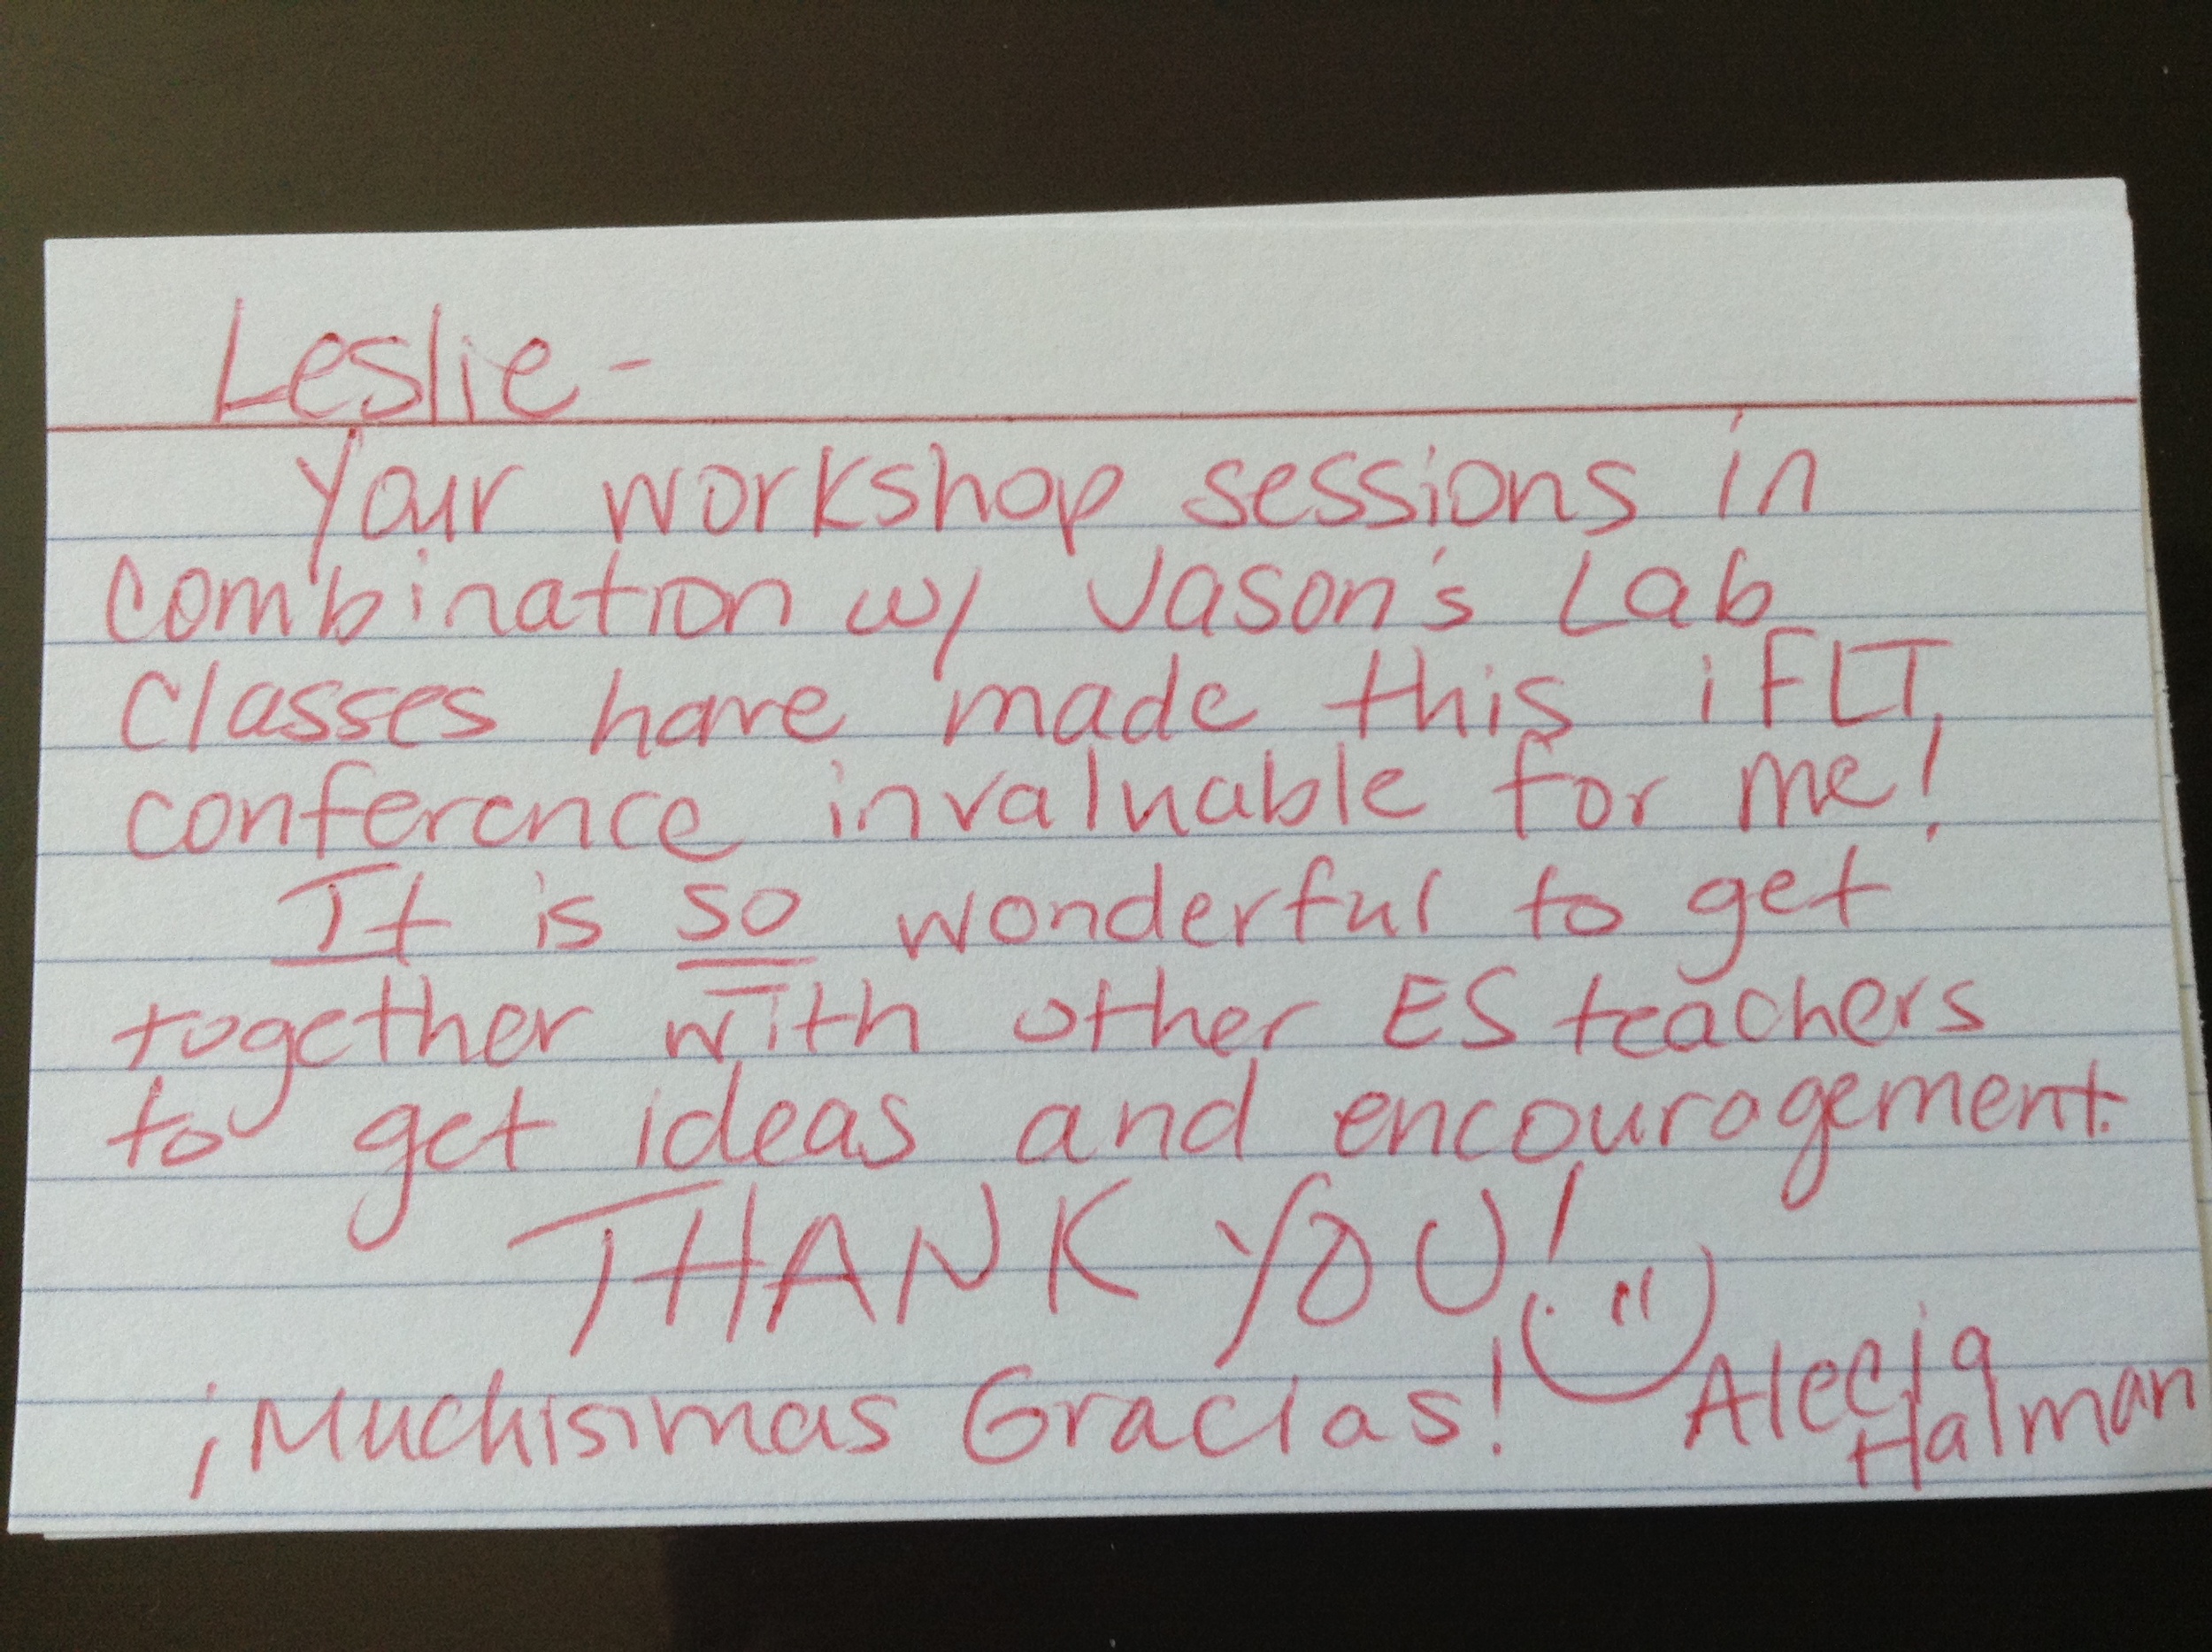 Leslie -
Your workshop sessions in
combination w/ Jason's Lab
Classes have made this iFLT
conference invaluable for me!
It is so wonderful to get
together with other ES teachers
to get ideas and encouragement.
THANK YOU!
¡Muchisimas Gracias! Alecia
Halman